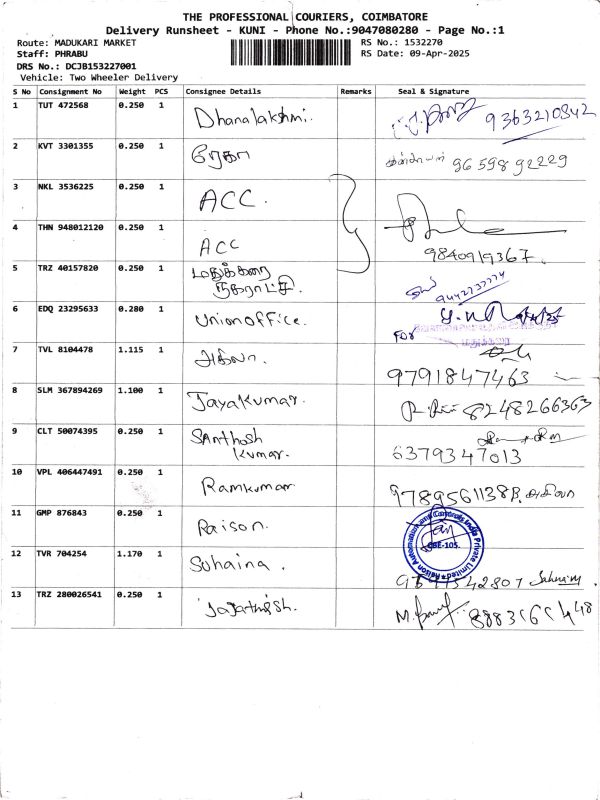 THE PROFESSIONAL COURIERS, COIMBATORE
Delivery Runsheet - KUNI - Phone No.:9047080280 - Page No.:1
Route: MADUKARI MARKET RS No.: 1532270
Staff: PHRABU RS Date: 09-Apr-2025
DRS No.: DCJB153227001
Vehicle: Two Wheeler Delivery
S No Consignment No Weight PCS Consignee Details Remarks Seal & Signature
1 TUT 472568 0.250 1 Dhanalakshmi. 9363210842
2 KVT 3301355 0.250 1 ரேகா 9659892229
3 NKL 3536225 0.250 1 ACC.
4 THN 948012120 0.250 1 ACC 9840919367.
5 TRZ 40157820 0.250 1 மதுக்கரை
நகராட்சி.
6 EDQ 23295633 0.280 1 Union office. FOR
7 TVL 8104478 1.115 1 அகிலா. 9791847463
8 SLM 367894269 1.100 1 Jayakumar. 8248266363
9 CLT 50074395 0.250 1 Santhosh
kumar. 6379347013
10 VPL 406447491 0.250 1 Ramkumar
11 GMP 876843 0.250 1 Raison. CBE-105.
12 TVR 704254 1.170 1 Suhaina.
13 TRZ 280026541 0.250 1